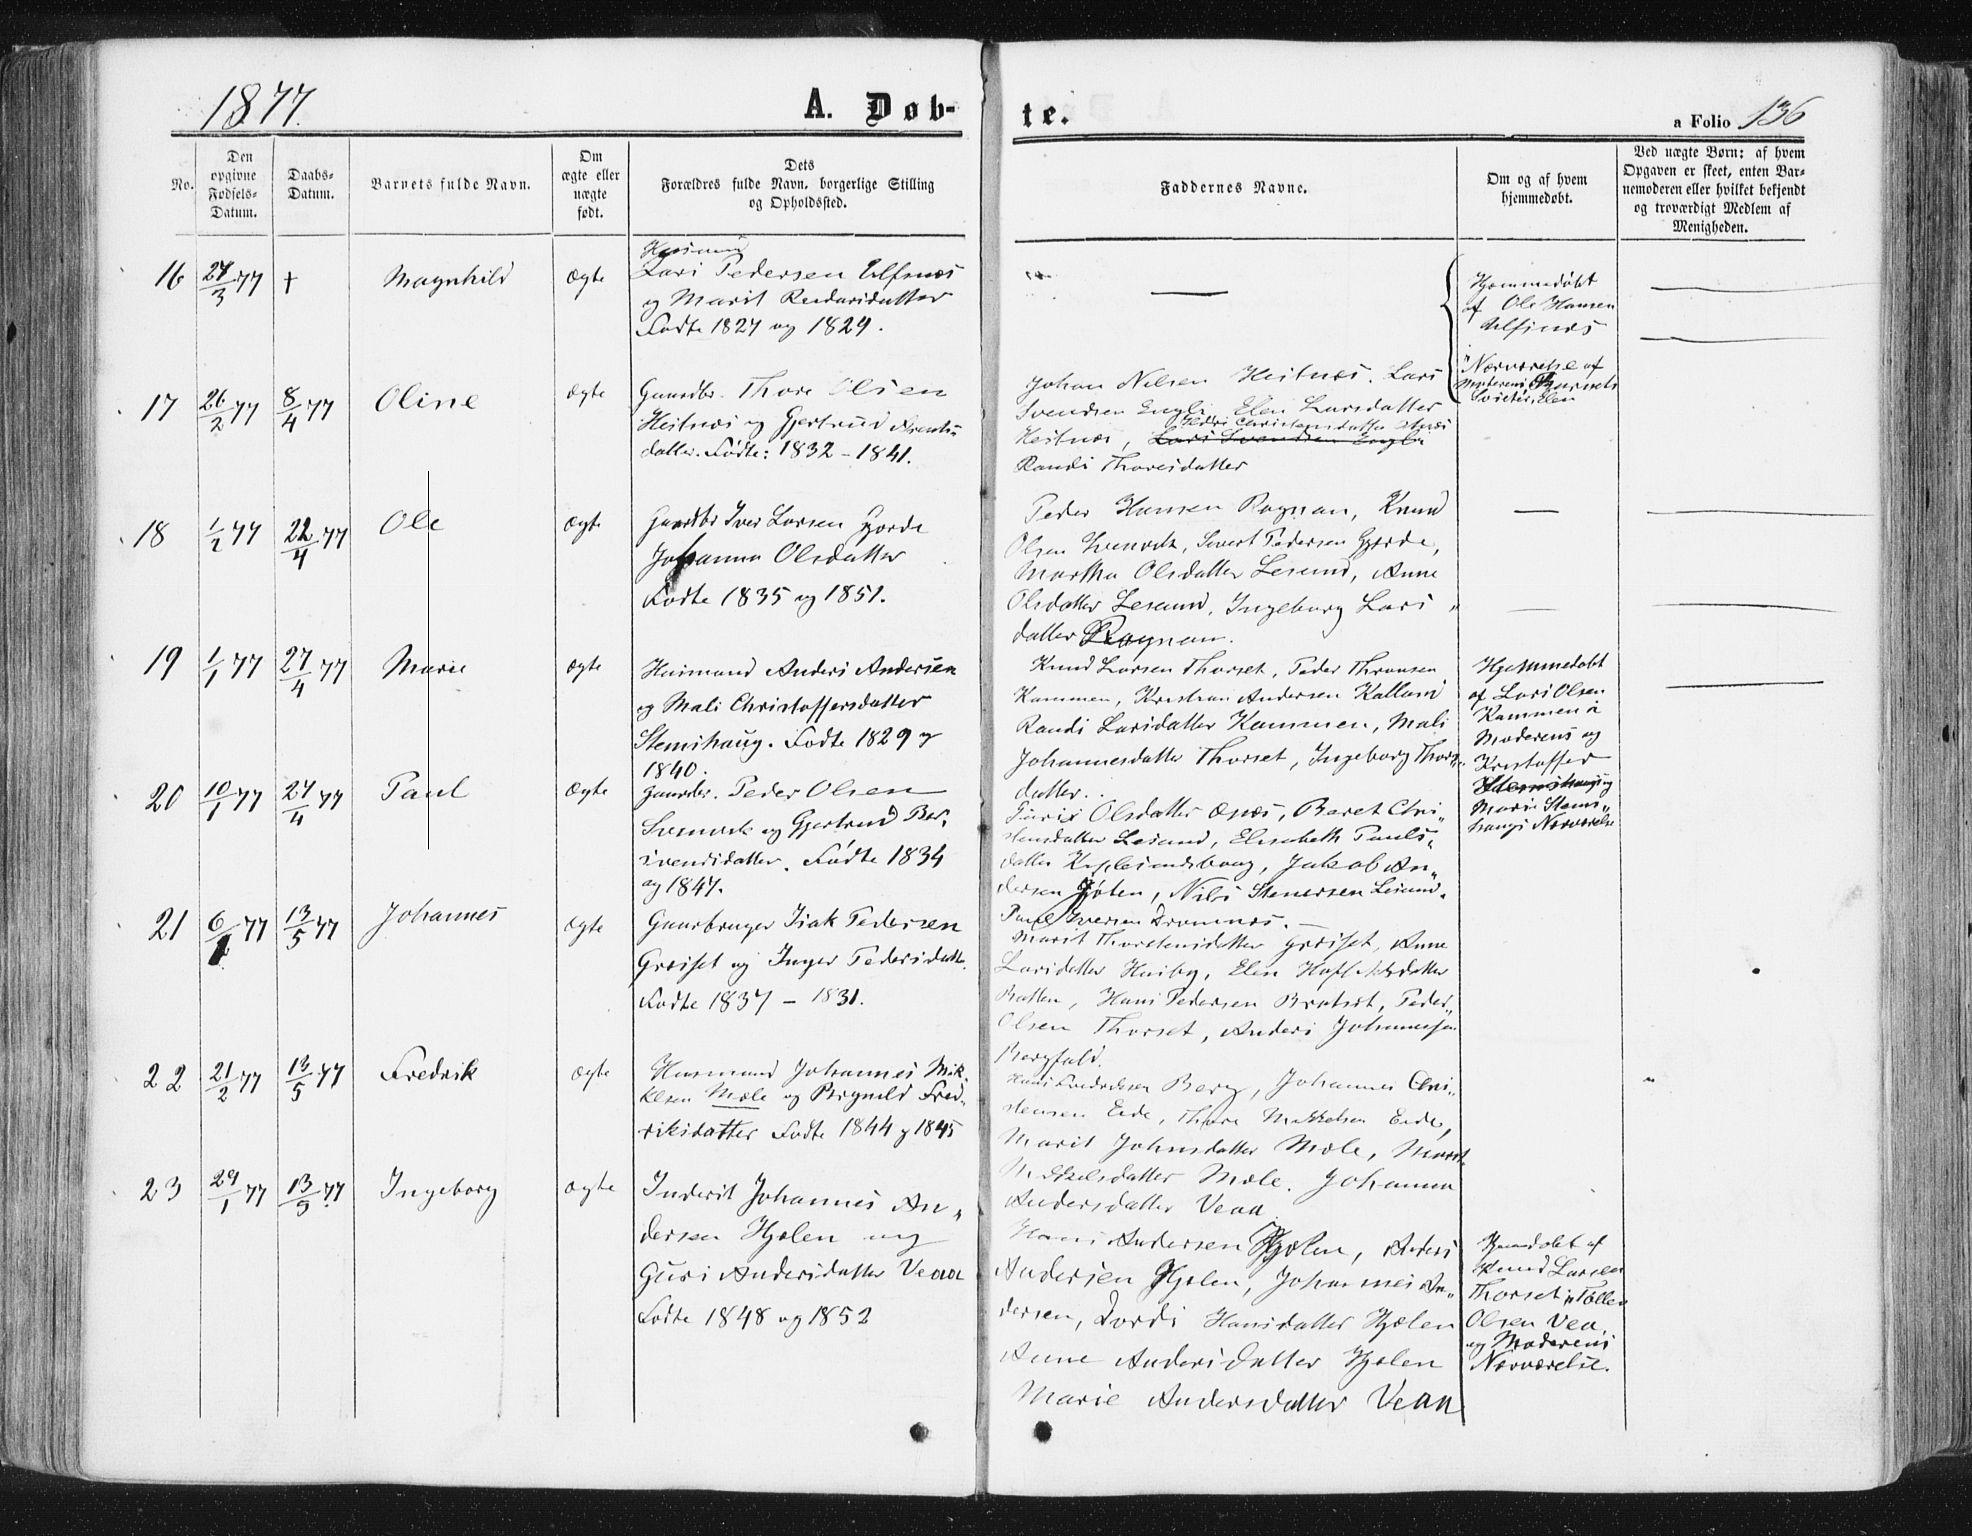 1877.
A. Døb-
te.
a Folio 136
No.
Den
opgivne
Fødsels-
Datum.
Daabs-
Datum.
Barnets fulde Navn.
Om
ægte eller
uægte
født.
Dets
Forældres fulde Navn, borgerlige Stilling
og Opholdssted.
Faddernes Navne.
Om og af hvem
hjemmedøbt.
Ved uægte Børn: af hvem
Opgaven er skeet, enten Bar-
nemoderen eller hvilket bekjendt
og troværdigt Medlem af
Menigheden.
16 27/3 77 + Magnhild ægte
Husmand
Lars Pedersen Ulfsnæs
og Marit
Fødte 1827 og 1829.
—
Hjemmedøbt
af Ole Hansen
Ulfsnæs
i Nærværelse af
Moderen, Barnets
Søster, Elen
17 26/2 77 8/4 77 Oline ægte
Gaardbr. Thore Olsen
Heitnæs og Gjertrud Arents
datter. Fødte: 1832 – 1841.
Johan Nilsen Heitnæs. Lars
Svendsen Engli, Elen Larsdatter
Christensdatter
Heitnæs, Lars Svendsen Engli
Randi Thoresdatter
18 1/2 77 22/4 77 Ole ægte
Gaardbr Iver Larsen Gjørde
Johanna Olsdatter
Fødte 1835 og 1851.
Peder Hansen Rognan, Knud
Olsen Svinvik, Sivert Pedersen Gjørde,
Martha Olsdatter Lesund, Anne
Olsdatter Lesund, Ingeborg Lars
datter Rognan.
—
19 1/1 77 27/4 77 Marie ægte
Husmand Anders Andersen
og Mali Christoffersdatter
Stemshaug. Fødte 1829 og
1840.
Knud Larsen Thorset, Peder Thronsen
Kammen, Kristian Andersen
Randi Larsdatter Kammen, Mali
Johannesdatter Thorset, Ingeborg
datter.
Hjemmedøbt
af Lars Olsen
Kammen i
Moderens og
Kristoffer
Stemshaug og
Marie Stems
haugs Nærværelse
20 10/1 77 27/4 77 Paul ægte
Gaardbr. Peder Olsen
Svinvik og Gjertrud Ber
svendsdatter. Fødte 1834
og 1847.
Olsdatter Ånæs, Beret Chri
stensdatter Lesund, Elisabeth Pauls
datter, Jakob An
dersen, Nils Stenersen Lesund
Paul Iversen Dromnæs. —
21 6/1 77 13/5 77 Johannes ægte
Gaarbruger Isak Pedersen
Grøiset og Inger Pedersdatter
Fødte 1837 – 1831.
Marit Thorstensdatter Grøiset, Anne
Larsdatter Haiby, Elen
Botten, Hans Pedersen Brøtset, Peder
Olsen Thorset, Anders Johannesen
Bergfald.
22 21/2 77 13/5 77 Fredrik ægte
Husmand Johannes Mik
kelsen Møle og Brynild Fred
riksdatter Fødte 1844 og 1845
Hans Fredriksen Berg, Johannes Chri
stensen Eide, Thore Mikkelsen Eide,
Marit Johnsdatter Møle, Marit
Mikkelsdatter Møle. Johanna
Andersdatter Veaa
23 29/1 77 13/5 77 Ingeborg ægte
Inderst Johannes An
dersen Hjelen og
Guri Andersdatter Veaa
Fødte 1848 og 1852
Hans Andersen Hjelen, Anders
Andersen Hjelen, Johannes An
dersen, Dordi Hansdatter Hjelen
Anne Andersdatter Hjelen
Marie Andersdatter Veaa
Hjemdøbt af
Knud Larsen
Thorset i Tøllen
Olsen Vea,
og Moderens
Nærværelse.